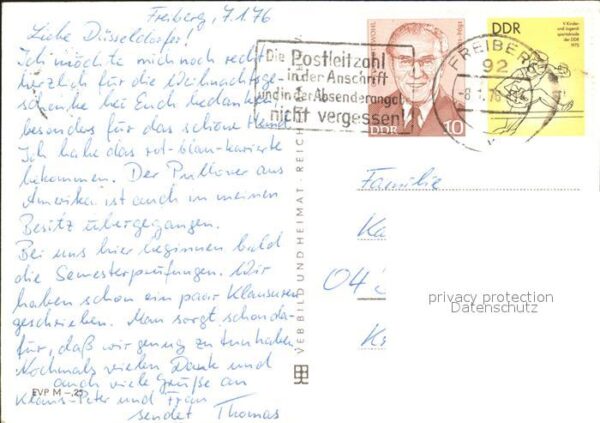 Freiberg, 7.1.76
Liebe Düsseldorfer!
Ich möchte mich noch recht
herzlich für die Weihnachtsge-
schenke bei Euch bedanken
besonders für das schöne Hemd
Ich habe das rot-blau-karierte
bekommen. Der Pullover aus
Amerika ist auch in meinen
Besitz übergegangen.
Bei uns hier beginnen bald
die Semesterprüfungen. Wir
haben schon ein paar Klausuren
geschrieben. Man sorgt schon da-
für, daß wir genug zu tun haben
Nochmals vielen Dank und
auch viele Grüße an
Klaus-Peter und Frau
sendet Thomas
EVP M -,25
VEB BILD UND HEIMAT · REICH
Die Postleitzahl
in der Anschrift
und in der Absenderangabe
nicht vergessen!
DDR 10
FREIBERG
92
-8.1.76
DDR
V. Kinder-
und Jugend-
spartakiade
der DDR
1975
Familie
Ka
04
privacy protection
Datenschutz